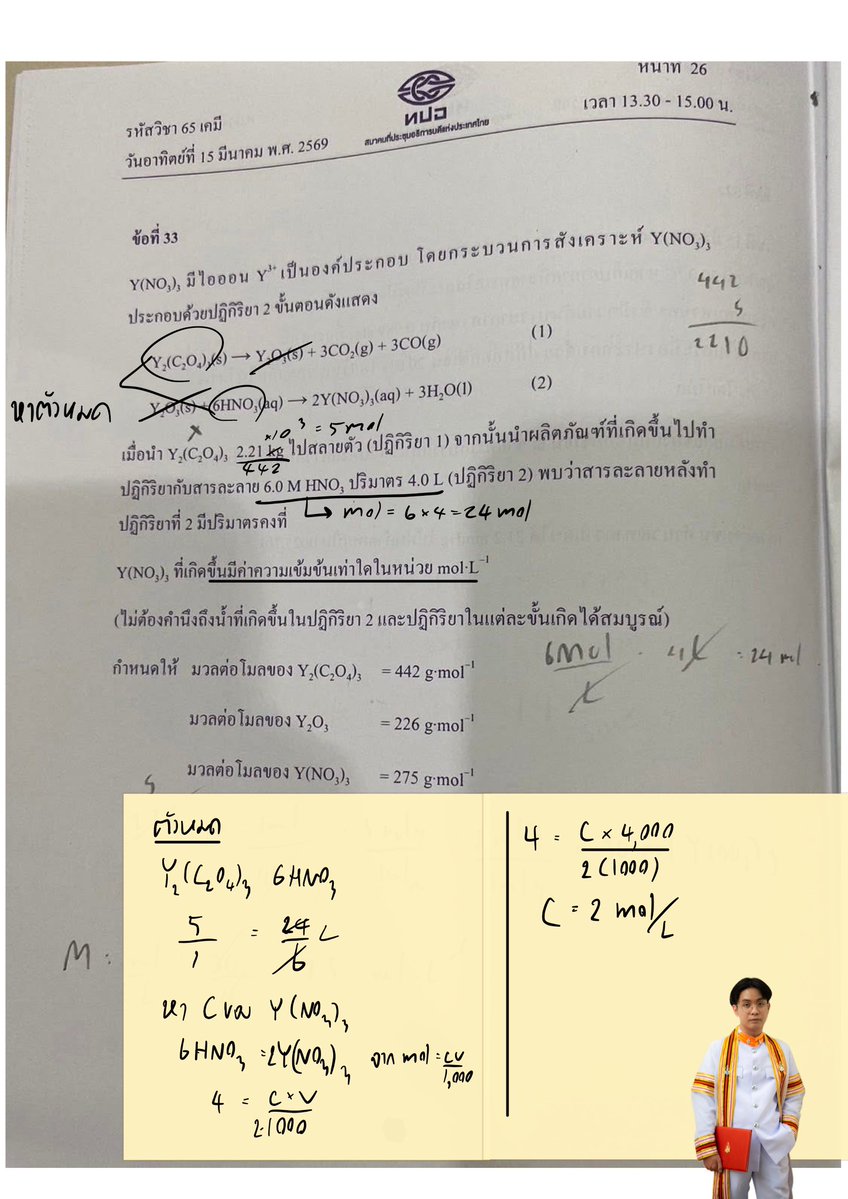 หน้าที่ 26
ทปอ
สมาคมที่ประชุมอธิการบดีแห่งประเทศไทย
รหัสวิชา 65 เคมี
เวลา 13.30 - 15.00 น.
วันอาทิตย์ที่ 15 มีนาคม พ.ศ. 2569
ข้อที่ 33
Y(NO₃)₃ มีไอออน Y³⁺ เป็นองค์ประกอบ โดยกระบวนการสังเคราะห์ Y(NO₃)₃
ประกอบด้วยปฏิกิริยา 2 ขั้นตอนดังแสดง
442
5
2210
Y₂(C₂O₄)₃(s) → Y₂O₃(s) + 3CO₂(g) + 3CO(g) (1)
Y₂O₃(s) + 6HNO₃(aq) → 2Y(NO₃)₃(aq) + 3H₂O(l) (2)
หาตัวหมด
×10³ = 5 mol
เมื่อนำ Y₂(C₂O₄)₃ 2.21 kg ไปสลายตัว (ปฏิกิริยา 1) จากนั้นนำผลิตภัณฑ์ที่เกิดขึ้นไปทำ
442
ปฏิกิริยากับสารละลาย 6.0 M HNO₃ ปริมาตร 4.0 L (ปฏิกิริยา 2) พบว่าสารละลายหลังทำ
mol = 6 × 4 = 24 mol
ปฏิกิริยาที่ 2 มีปริมาตรคงที่
Y(NO₃)₃ ที่เกิดขึ้นมีค่าความเข้มข้นเท่าใดในหน่วย mol·L⁻¹
(ไม่ต้องคำนึงถึงน้ำที่เกิดขึ้นในปฏิกิริยา 2 และปฏิกิริยาในแต่ละขั้นเกิดได้สมบูรณ์)
6mol · 4L = 24 mol
L
กำหนดให้ มวลต่อโมลของ Y₂(C₂O₄)₃ = 442 g·mol⁻¹
มวลต่อโมลของ Y₂O₃ = 226 g·mol⁻¹
มวลต่อโมลของ Y(NO₃)₃ = 275 g·mol⁻¹
5
M :
ตัวหมด
Y₂(C₂O₄)₃ 6HNO₃
5/1 = 24/6 L
หา C ของ Y(NO₃)₃
6HNO₃ = 2Y(NO₃)₃ จาก mol = CV/1,000
4 = C×V/2·1000
4 = C × 4,000/2(1000)
C = 2 mol/L